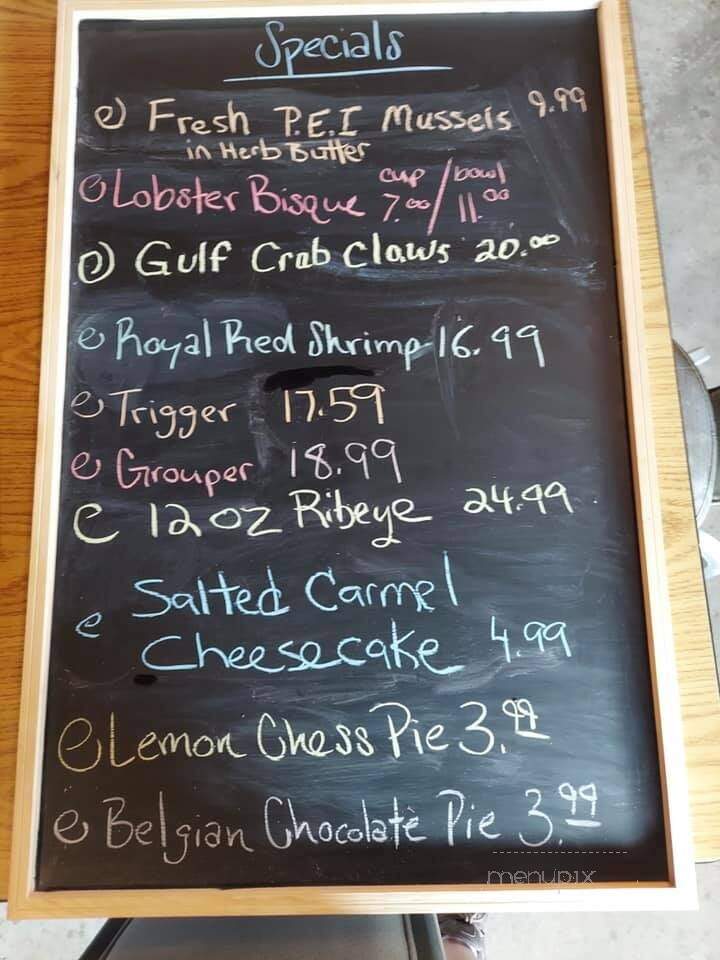 Specials
Fresh P.E.I Mussels 9.99
in Herb Butter
Lobster Bisque cup 7.00 / bowl 11.00
Gulf Crab Claws 20.00
Royal Red Shrimp 16.99
Trigger 17.59
Grouper 18.99
12 oz Ribeye 24.99
Salted Carmel
Cheesecake 4.99
Lemon Chess Pie 3.99
Belgian Chocolate Pie 3.99
menupix